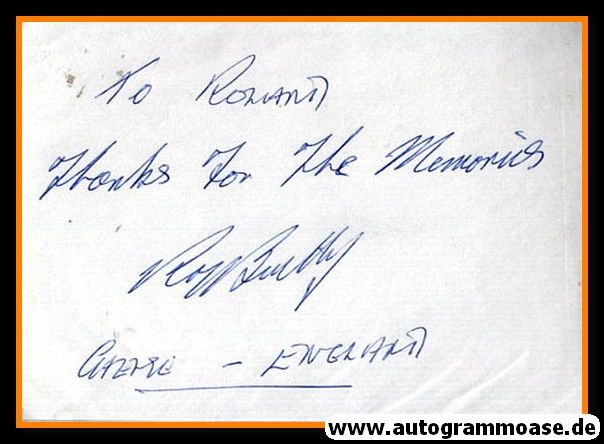 To Roland
Thanks For The Memories
Roy Bentley
Chelsea - England
www.autogrammoase.de